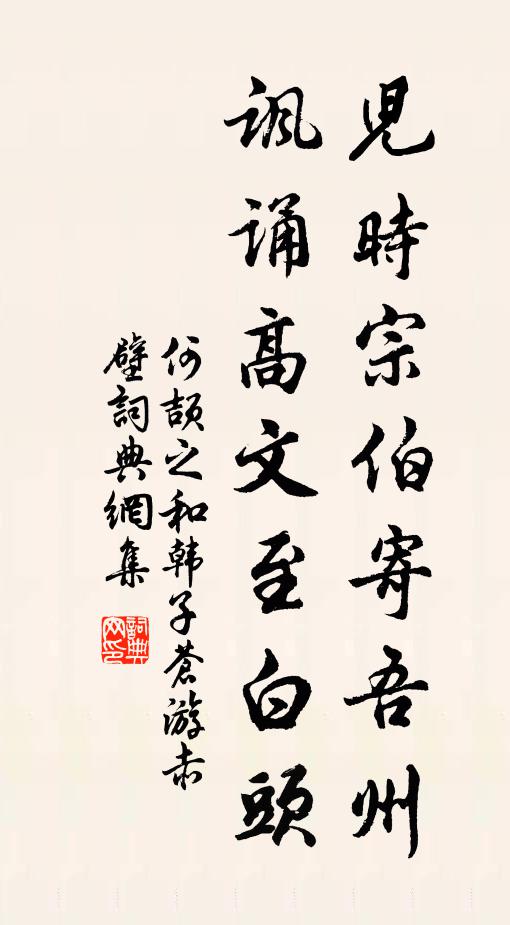 児時宗伯寄吾州
諷誦高文至白頭
何頡之和韩子蒼游赤
壁詞典網集
詞典网印